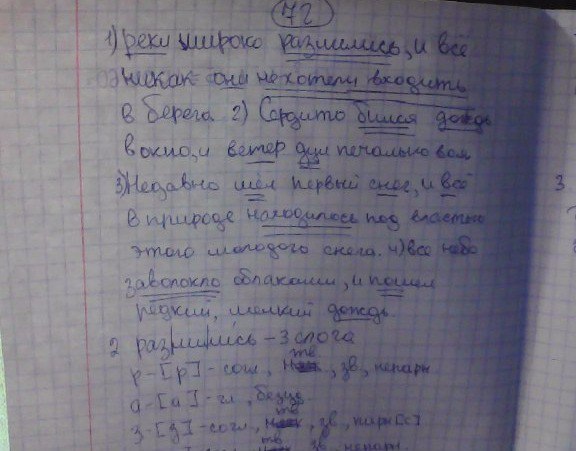 72
1) реки широко разлились, и всё
никак они не хотели входить
в берега 2) Сердито бился дождь
в окно, и ветер дул печально воя
3) Недавно шёл первый снег, и всё
в природе находилось под властью
этого молодого снега. 4) всё небо
заволокло облаками, и пошел
редкий, мелкий дождь
3
2 разлились - 3 слога
р - [р] - согл, тв, зв, непарн
а - [а] - гл, безуд
з - [з] - согл, тв, зв, парн [с]
тв зв, непарн.